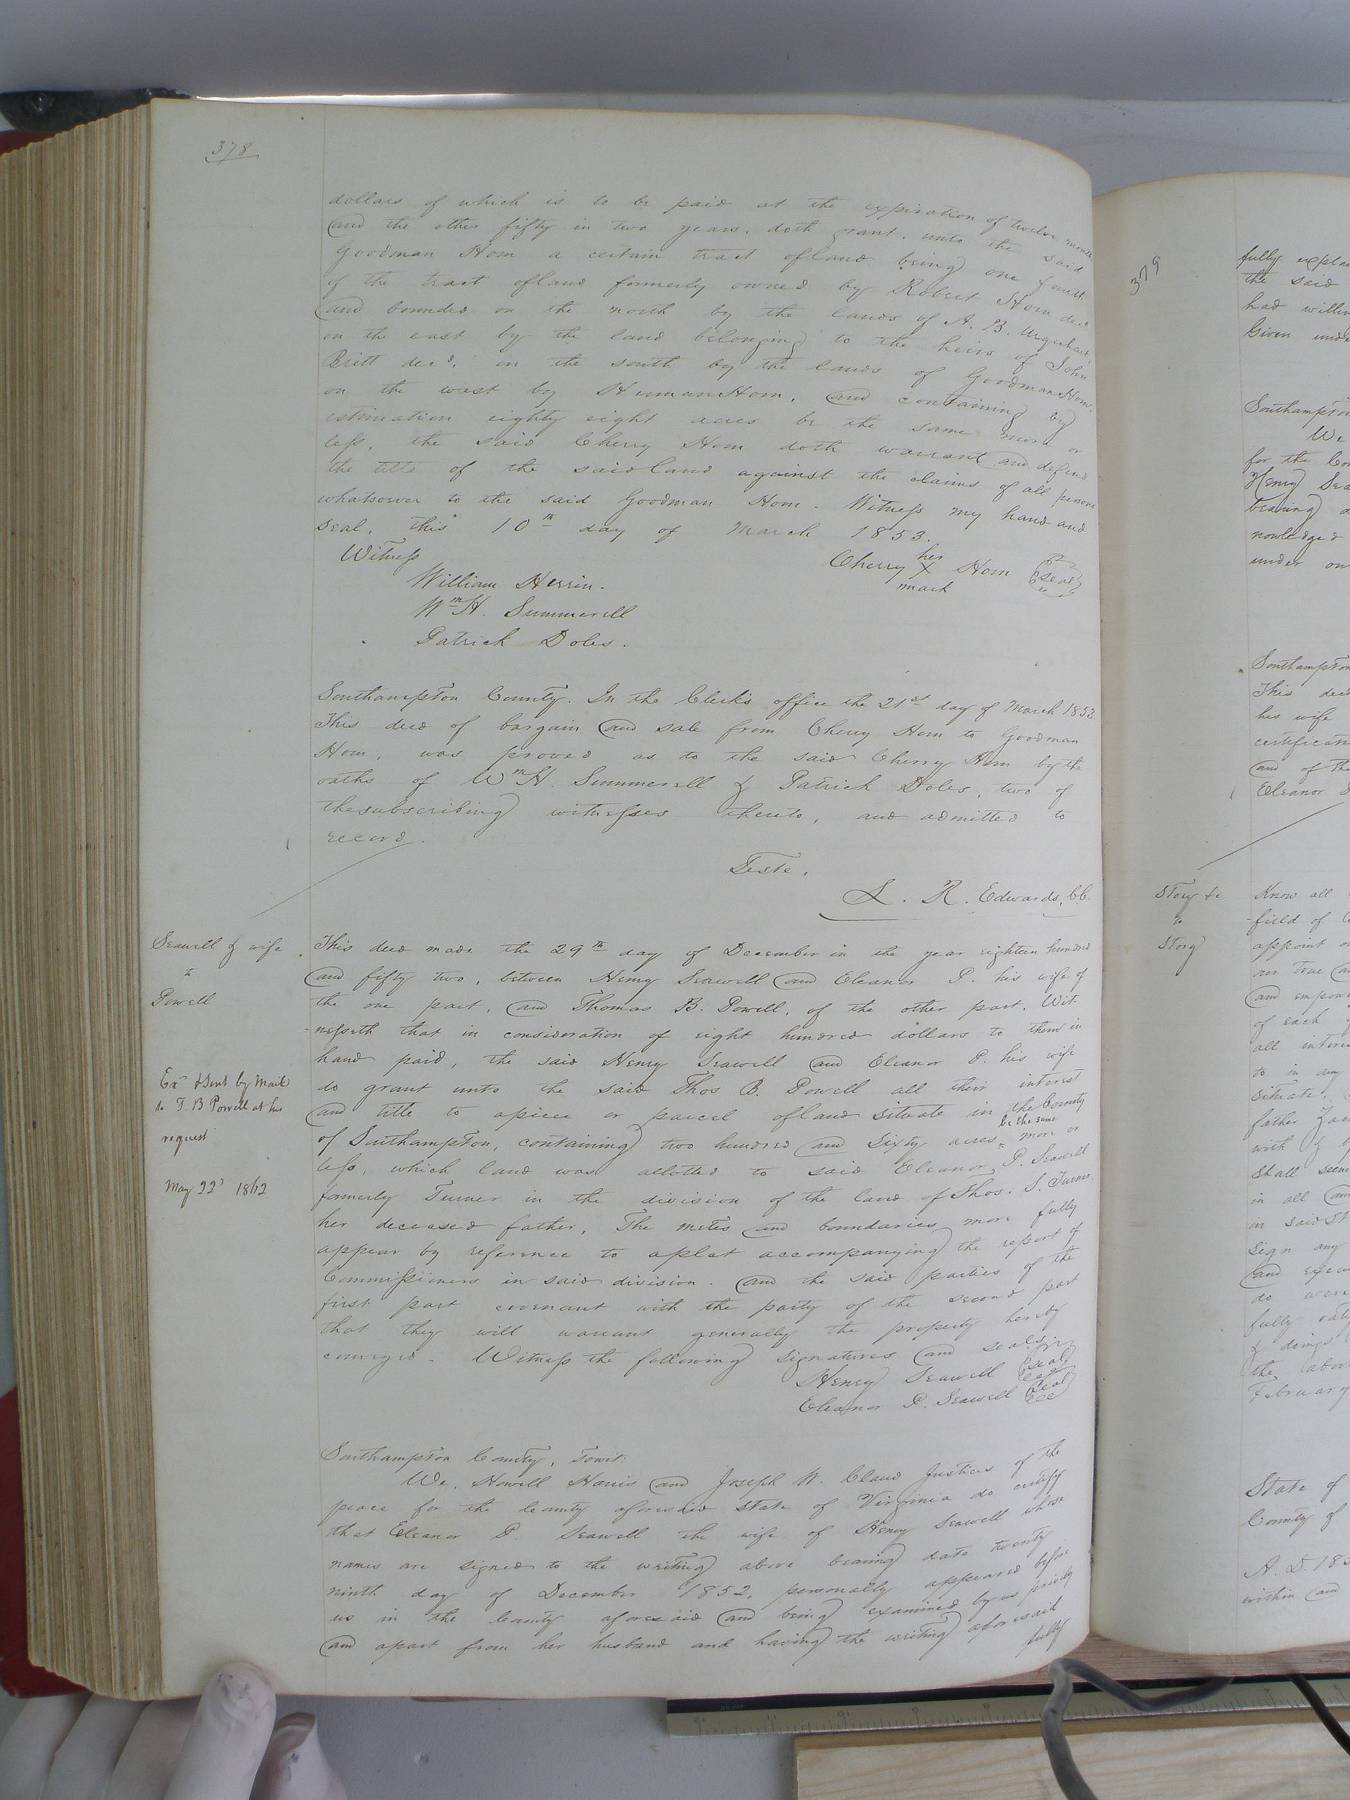 378
dollars of which is to be paid at the expiration of twelve month
and the other fifty in two years, doth grant, unto the said
Goodman Horn a certain tract of land being one fourth
of the tract of land formerly owned by Robert Horn decd
and bounded on the north by the lands of A. B. Urquhart,
on the east by the land belonging to the heirs of John
Britt decd, on the south by the lands of Goodman Horn
on the west by Herman Horn, and containing by
estimation eighty eight acres be the same more or
less, the said Cherry Horn doth warrant and defend
the title of the said land against the claims of all persons
whatsoever to the said Goodman Horn. Witness my hand and
seal, this 10th day of March 1853.
Witness
her
Cherry X Horn (seal)
mark
William Herrin.
Wm H. Summerell
Patrick Doles.
Southampton County. In the Clerk's office the 21st day of March 1853.
This deed of bargain and sale from Cherry Horn to Goodman
Horn, was proved as to the said Cherry Horn by the
oaths of Wm H. Summerell & Patrick Doles, two of
the subscribing witnesses thereto, and admitted to
record.
Teste,
L. R. Edwards, CC.
Seawell & wife
to
Powell
Exd & Sent by mail
to T. B Powell at his
request
May 22d 1862
This deed made the 29th day of December in the year eighteen hundred
and fifty two, between Henry Seawell and Eleanor P. his wife of
the one part, and Thomas B. Powell, of the other part. Wit-
nesseth that in consideration of eight hundred dollars to them in
hand paid, the said Henry Seawell and Eleanor P. his wife
do grant unto the said Thos B. Powell all their interest
and title to a piece or parcel of land situate in the County
of Southampton, containing two hundred and sixty acres be the same more or
less, which land was allotted to said Eleanor P. Seawell
formerly Turner in the division of the land of Thos. S. Turner
her deceased father, The metes and boundaries more fully
appear by reference to a plat accompanying the report of
Commissioners in said division. and the said parties of the
first part covenant with the party of the second part
that they will warrant generally the property hereby
conveyed. Witness the following signatures and seals.
Henry Seawell (seal)
Eleanor P. Seawell (seal)
Southampton County, Towit:
We, Howell Harris and Joseph W. Claud Justices of the
peace for the County aforesaid State of Virginia do certify
that Eleanor P Seawell the wife of Henry Seawell whose
names are signed to the writing above bearing date twenty
ninth day of December 1852, personally appeared before
us in the County aforesaid and being examined by us privily
and apart from her husband and having the writing aforesaid
fully
379
fully expla
the said
had willin
Given unde
Southampton
We
for the Co
Henry Sea
bearing d
nowledged
under ou
Southampton
This deed
his wife
certificate
and of th
Eleanor
Story &c
to
Story
Know all
field of
appoint
our true
and empow
of each
all intere
to in any
situate,
father
with &
shall seem
in all and
in said St
sign any
and exec
do were
fully rati
& doings
the abov
February
State of
County of
A. D. 185
within and